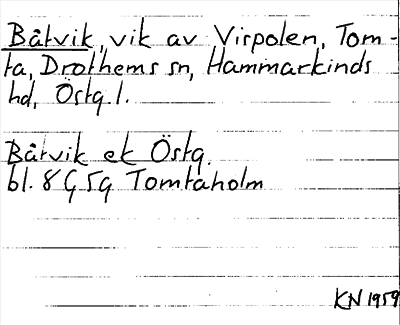 Båtvik, vik av Virpolen, Tom-
ta, Drothems sn, Hammarkinds
hd, Östg. l.
Båtvik ek Östg.
bl. 8 G 5g Tomtaholm
KN 1959